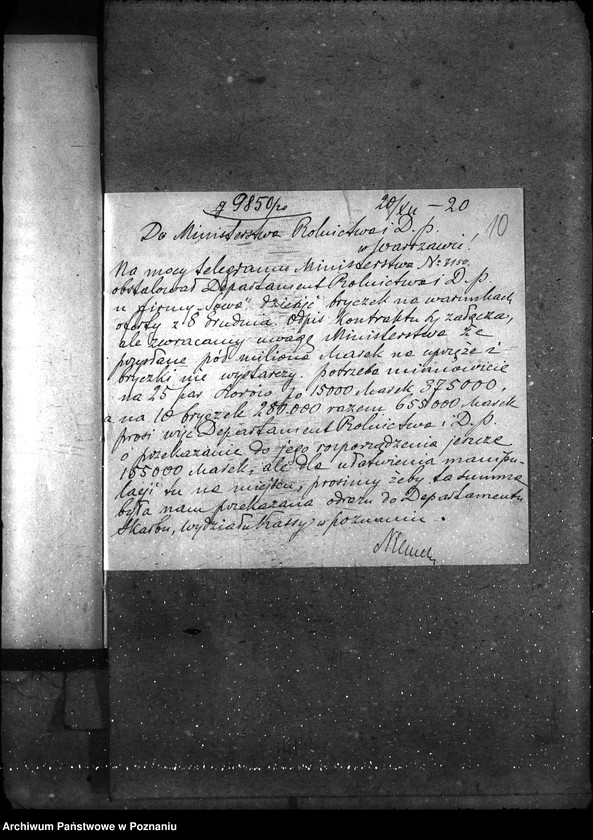 9850/20
20/XII – 20
10
Do Ministerstwa Rolnictwa i D. p.
w Warszawie!
Na mocy telegramu Ministerstwa Nr
obstalował Departament Rolnictwa i D. p.
u firmy "Sowa" dziesięć bryczek na warunkach
oferty z 8 Grudnia. Odpis Kontraktu załącza,
ale zwracamy uwagę Ministerstwa że
przysłane pół miliona Marek na uprzęże i
bryczki nie wystarczy. potrzeba mianowicie
na 25 par 15000 Marek 375000,
a na 10 bryczek 280.000 razem 655.000 Marek
prosi więc Departament Rolnictwa i D. p.
o przekazanie do jego rozporządzenia jeszcze
155000 Marek, ale dla ułatwienia manipu-
lacji tu na miejscu, prosimy żeby ta summa
była nam przekazana odrazu do Departamentu
Skarbu, wydziału Kassy, w poznaniu.
Archiwum Państwowe w Poznaniu